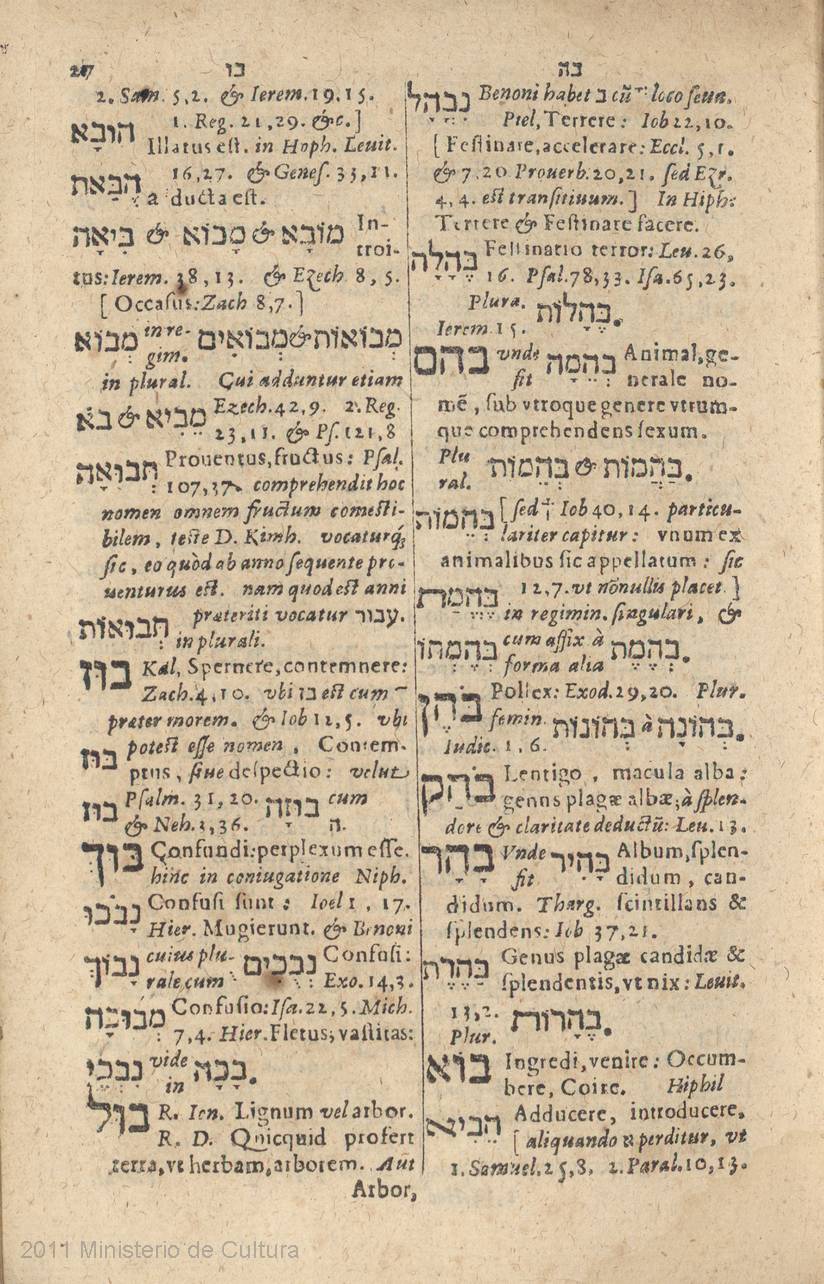 217 בו בה
נבהל Benoni habet נ cũ ⁻ loco ſeua.
Piel, Terrere: Iob 22,10.
[Feſtinare, accelerare: Eccl. 5,1.
& 7.20 Prouerb. 20,21. ſed Ezr.
4,4. eſt tranſitiuum.] In Hiph:
Terrere & Feſtinare facere.
בהלה Feſtinatio terror: Leu. 26,
16. Pſal. 78,33. Iſa. 65,23.
Plura. בהלות.
Ierem 15.
בהם vnde בהמה Animal, ge-
fit nerale no-
mẽ, ſub vtroque genere vtrum-
que comprehendens ſexum.
Plu בהמות & בהמות.
ral.
בהמות [ſed Iob 40,14. particu-
lariter capitur: vnum ex
animalibus ſic appellatum: ſic
בהמת 12,7. vt nõnullis placet.]
in regimin. ſingulari, &
בהמתו cum affix à בהמת.
forma alia
בהן Pollex: Exod. 29,20. Plur.
femin. בהונה à בהונות.
Iudic. 1,6.
בהק Lentigo, macula alba:
genus plagæ albæ; à ſplen-
dore & claritate deductũ: Leu. 13.
בהר Vnde בהיר Album, ſplen-
fit didum, can-
didum. Tharg. ſcintillans &
ſplendens: Iob 37,21.
בהרת Genus plagæ candidæ &
ſplendentis, vt nix: Leuit.
13,2. בהרות.
Plur.
בוא Ingredi, venire: Occum-
bere, Coire. Hiphil
הביא Adducere, introducere.
[aliquando א perditur, vt
1. Samuel. 25,8. 2. Paral. 10,13.
2. Sam. 5,2. & Ierem. 19.15.
הובא 1. Reg. 21,29. &c.]
Illatus eſt. in Hoph. Leuit.
הבאת 16,27. & Geneſ. 33,11.
adducta eſt.
מובא & מבוא & ביאה In-
troi-
tus: Ierem. 38,13. & Ezech 8,5.
[Occaſus: Zach 8,7.]
מבוא in re- מבואות & מבואים
gim.
in plural. Cui adduntur etiam
מביא & בא Ezech. 42,9. 2. Reg.
23,11. & Pſ. 121,8
תבואה Prouentus, fructus: Pſal.
107,37. comprehendit hoc
nomen omnem fructum comeſti-
bilem, teſte D. Kimh. vocaturq́;
ſic, eo quòd ab anno ſequente pro-
uenturus eſt. nam quod eſt anni
præteriti vocatur עבור.
תבואות in plurali.
בוז Kal, Spernere, contemnere:
Zach. 4,10. vbi בז eſt cum ⁻
præter morem. & Iob 12,5. vbi
בוז poteſt eſſe nomen, Contem-
ptus, ſiue deſpectio: velut
בוז Pſalm. 31,20. בוזה cum
& Neh. 3,36. ה.
בוך Confundi: perplexum eſſe.
hinc in coniugatione Niph.
נבכו Confuſi ſunt: Ioel 1, 17.
Hier. Mugierunt. & Benoni
נבוך cuius plu- נבכים Confuſi:
rale cum Exo. 14,3.
מבוכה Confuſio: Iſa. 22,5. Mich.
7,4. Hier. Fletus; vaſtitas:
נבכי vide בכה.
in
בול R. Ion. Lignum vel arbor.
R. D. Quicquid profert
terra, vt herbam, arborem. Aut
Arbor,
2011 Ministerio de Cultura